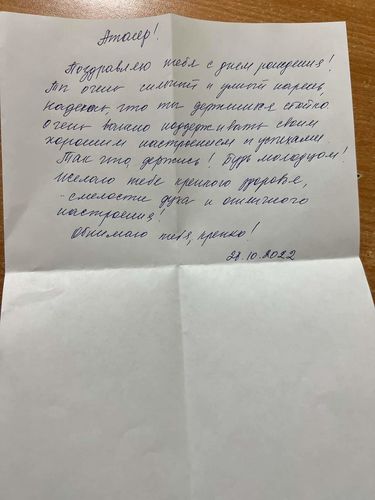 Аталер!
Поздравляю тебя с днем рождения!
Ты очень сильный и умный парень,
надеюсь, что ты держишься стойко
очень важно поддерживать своим
хорошим настроением и успехами.
Так что, держись! Будь молодцом!
Желаю тебе крепкого здоровья,
смелости духа и отличного
настроения!
Обнимаю тебя, крепко!
28.10.2022